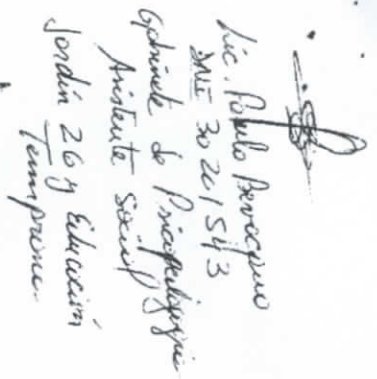 Lic. Paula Bevacqua
DNI 30201543
Gabinete de Psicopedagogía
Asistente Social
Jardín 26 y Educación
Temprana.